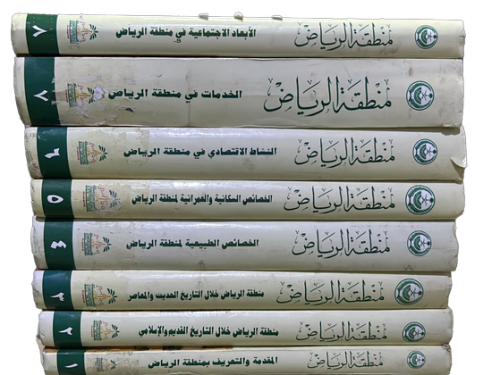 منطقة الرياض
الأبعاد الاجتماعية في منطقة الرياض
٨
منطقة الرياض
الخدمات في منطقة الرياض
منطقة الرياض
النشاط الاقتصادي في منطقة الرياض
٦
منطقة الرياض
الخصائص السكانية والعمرانية لمنطقة الرياض
٥
منطقة الرياض
الخصائص الطبيعية لمنطقة الرياض
٤
منطقة الرياض
منطقة الرياض خلال التاريخ الحديث والمعاصر
٣
منطقة الرياض
منطقة الرياض خلال التاريخ القديم والإسلامي
٢
منطقة الرياض
المقدمة والتعريف بمنطقة الرياض
١